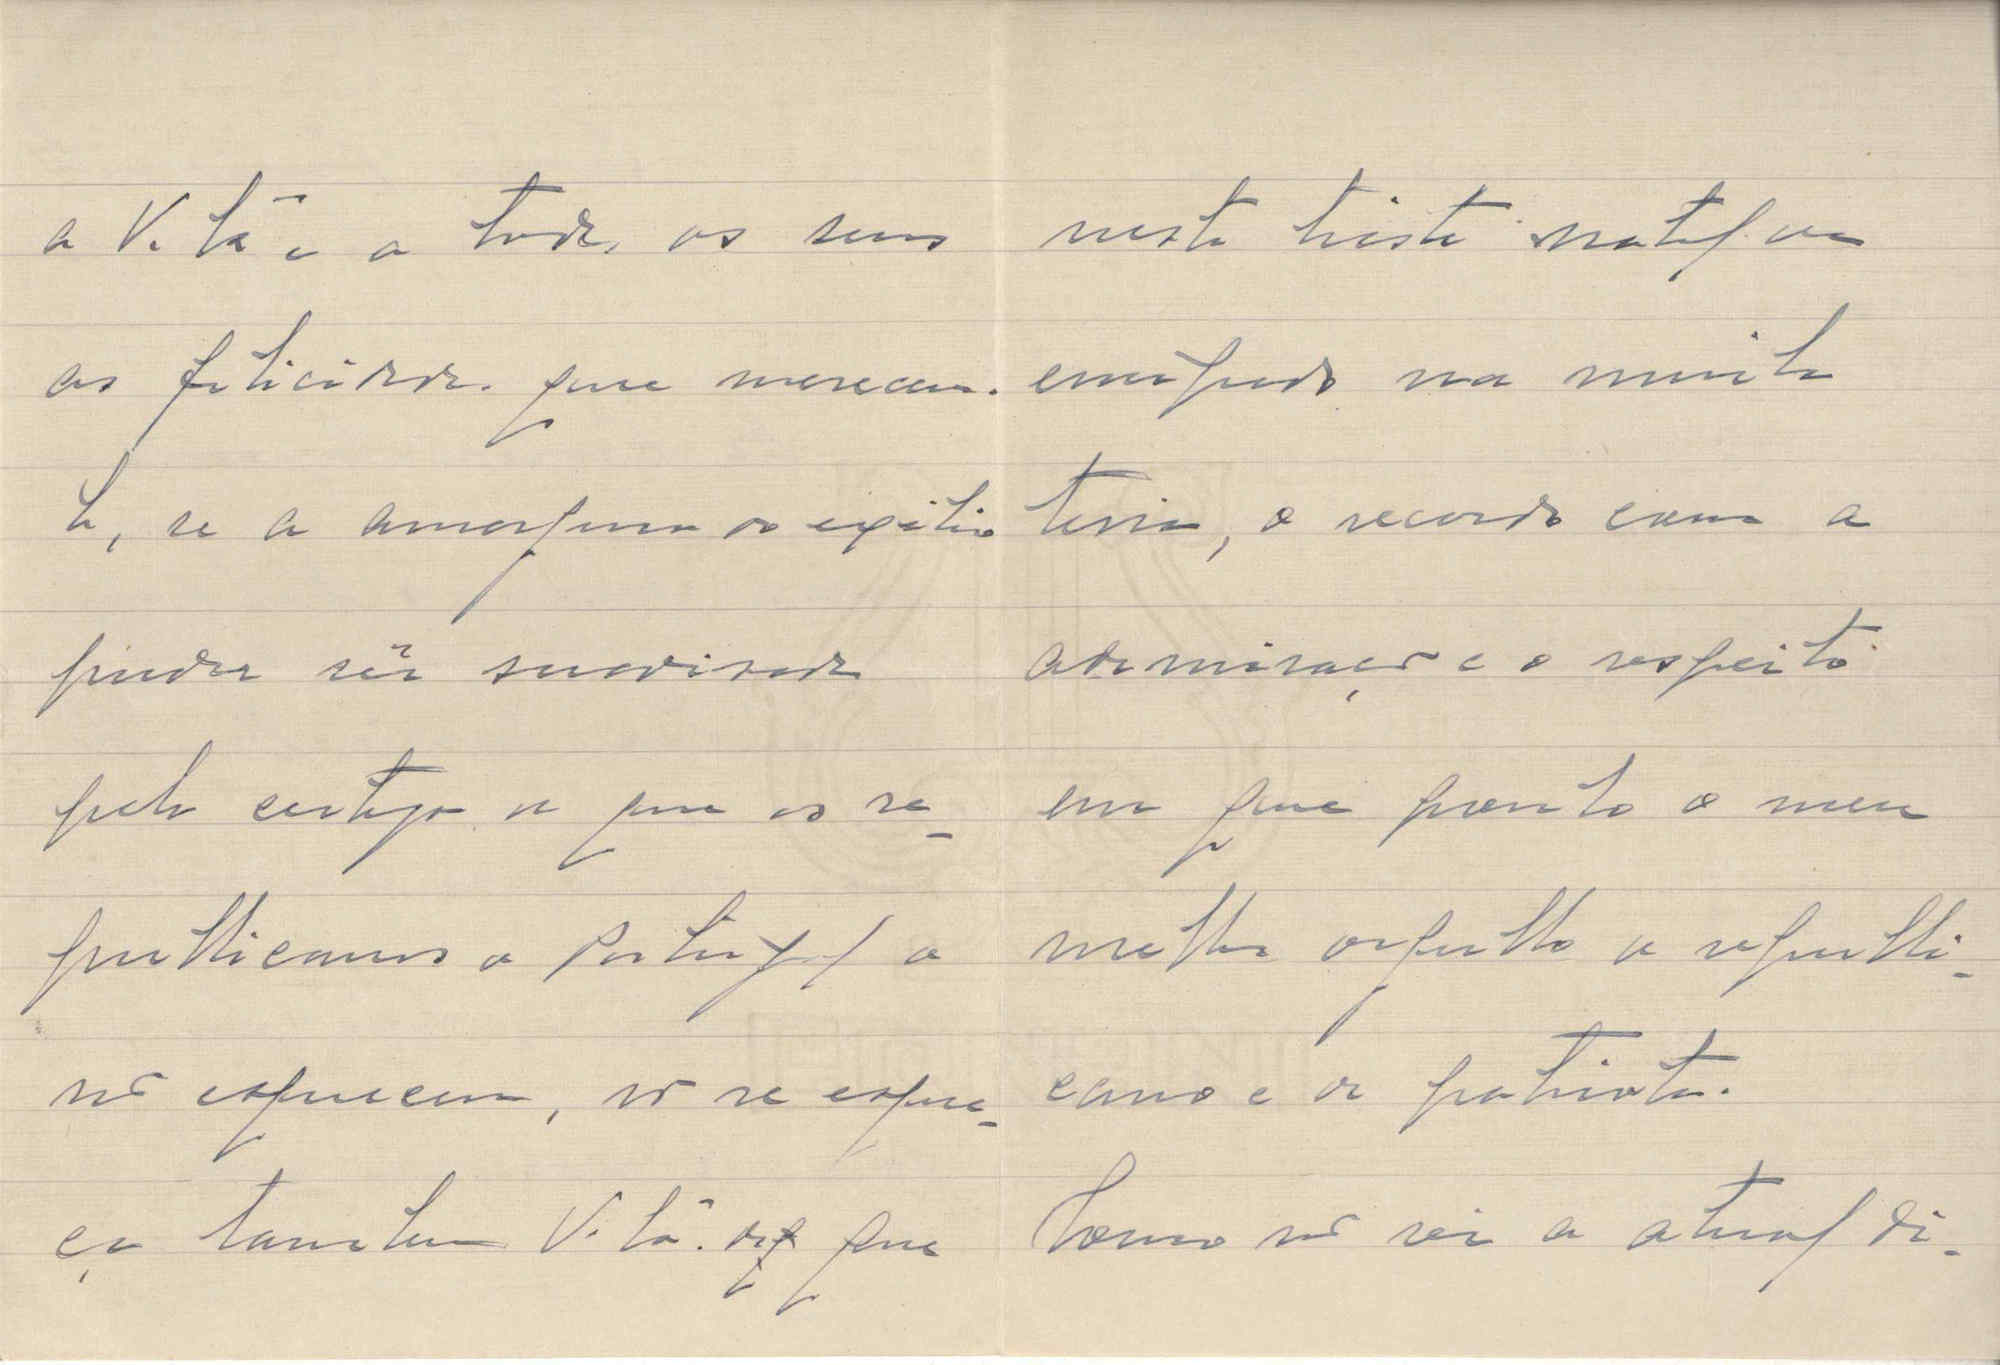 a V. Exª e a todos os seus
as felicidades que merecem.
E, se a amargura do exilio
puder sêr suavisada
pela certeza de que os re-
publicanos de Portugal o
não esquecem, não se esque-
ça tambem V. Exª. de que
neste triste Natal em
na minha
terra, o recordo com a
admiração e o respeito
em que ponho o meu
melhor orgulho de republi-
cano e de patriota.
Como não sei a atual di-